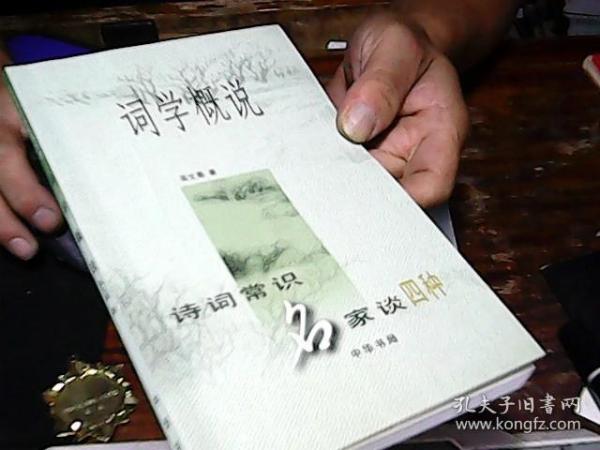 词学概说
著
诗词常识
名家谈四种
中华书局
孔夫子旧书网
www.kongfz.com